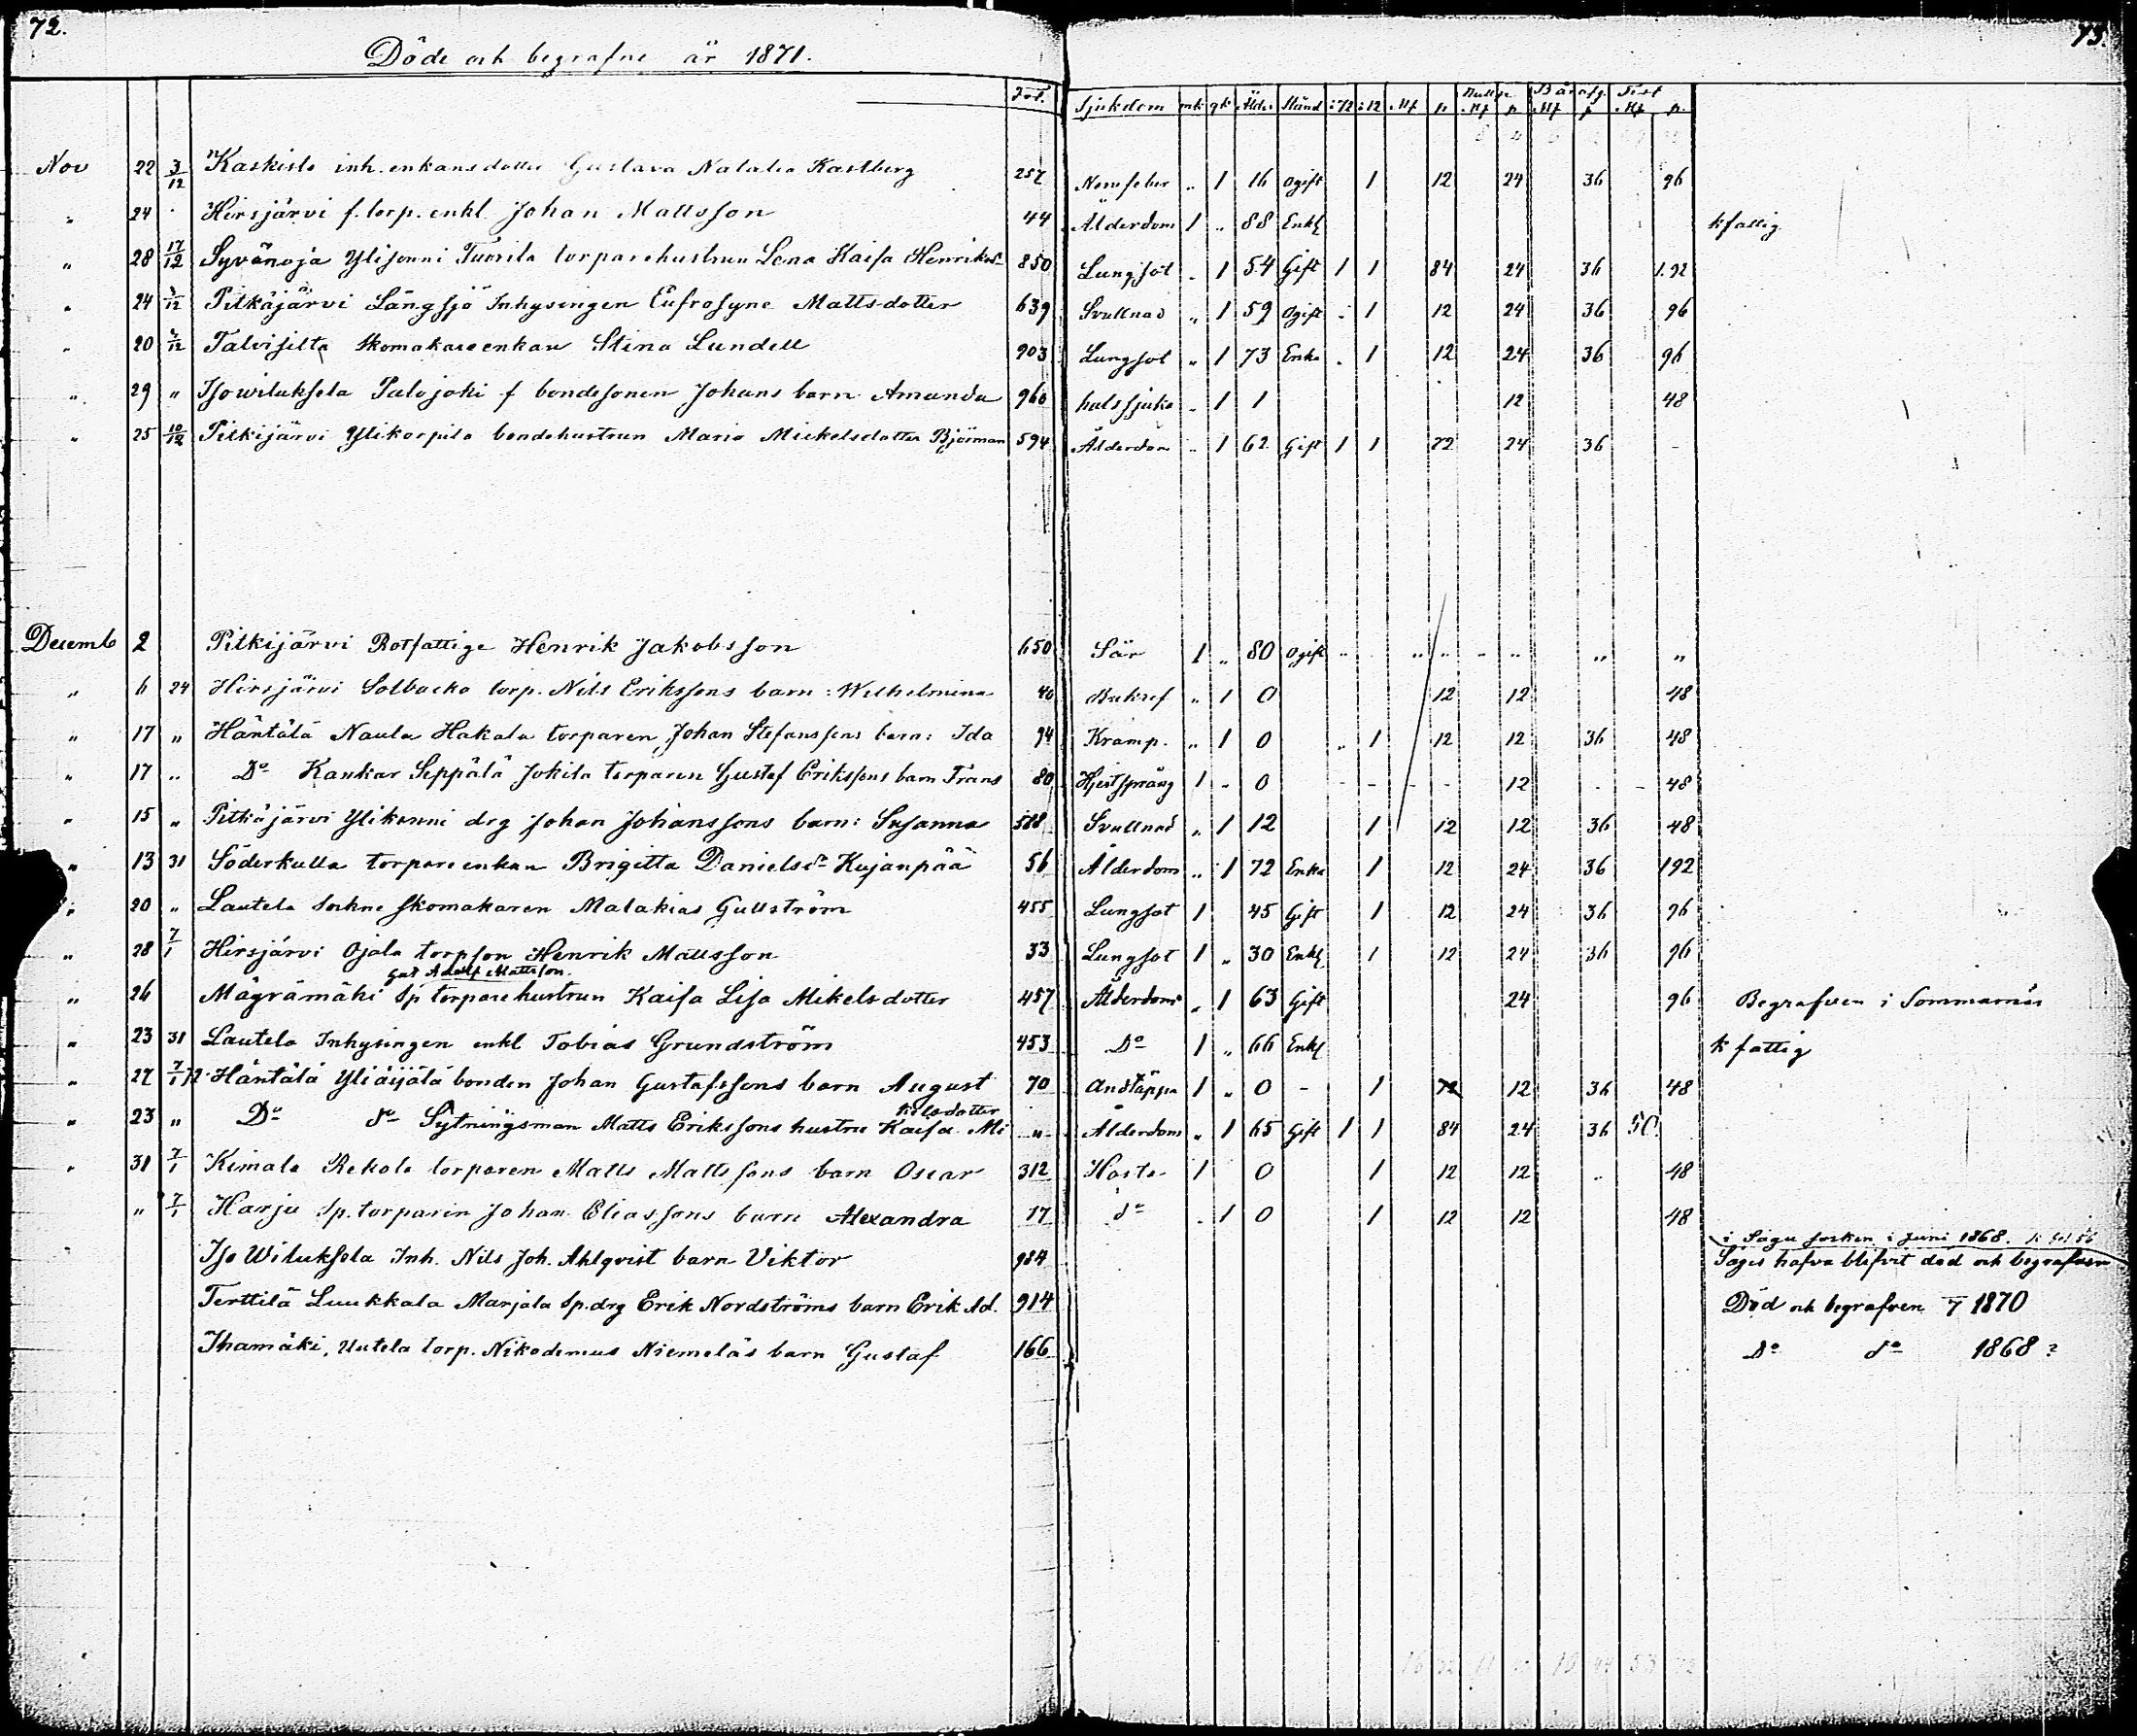 72.
73.
Döde och begrafne år 1871.
Fol. Sjukdom mk qk Ålder Stånd :72 :12 Mf p Mf p Mf p Mf p.
Nov 22 3/12 Kaskisto inh. enkans dotter Gustava Natalia Kastberg 257 Nervfeber " 1 16 ogift 1 12 24 36 96
" 24 Hirsjärvi f. torp. enkl. Johan Mattsson 44 Ålderdom 1 " 88 Enkl kfattig
" 28 17/12 Syvänoja Ylisonni Tuorila torparehustrun Lena Kaisa Henriksd 850 Lungsot " 1 54 Gift 1 1 84 24 36 1.92
" 24 /12 Pitkäjärvi Långsjö Inhysingen Eufrosyne Mattsdotter 639 Svullnad " 1 59 Ogift " 1 12 24 36 96
" 20 /12 Talvisilta Skomakareenkan Stina Lundell 903 Lungsot " 1 73 Enka . 1 12 24 36 96
" 29 " Isowiluksela Palojoki f bondesonen Johans barn Amanda 960 halssjuka " 1 1 12 48
" 25 10/12 Pitkijärvi Ylikorpila bondehustrun Maria Mickelsdotter Björman 594 Ålderdom " 1 62 Gift 1 1 72 24 36 -
Decemb 2 Pitkijärvi Rotfattige Henrik Jakobsson 650 Sår 1 " 80 ogift " " " " " " "
" 6 24 Hirsjärvi Solbacka torp. Nils Erikssons barn: Wilhelmina 40 Bukref " 1 0 12 12 48
" 17 " Häntälä Naula Hakala torparen Johan Stefanssons barn: Ida 94 Kramp. " 1 0 " 1 12 12 36 48
" 17 " Do Kankar Seppälä Jokila torparen Gustaf Erikssons barn Frans 80 1 - 0 - - - - 12 - - 48
" 15 " Pitkäjärvi Ylikonni drg Johan Johanssons barn: Susanna 588 Svullnad " 1 12 1 12 12 36 48
" 13 31 Söderkulla torpareenkan Brigitta Danielsdr Kujanpää 56 Ålderdom " 1 72 Enka 1 12 24 36 192
" 20 " Lautela Sockne skomakaren Malakias Gullström 455 Lungsot 1 45 Gift 1 12 24 36 96
" 28 7/1 Hirsjärvi Ojala torpson Henrik Mattsson 33 Lungsot 1 " 30 Enkl 1 12 24 36 96
Gust Adolf Mattsson.
" 26 Mägrämäki Sp torparehustrun Kaisa Lisa Mikelsdotter 457 Ålderdom " 1 63 Gift 24 96 Begrafven i Sommarnäs
" 23 31 Lautela Inhysingen enkl Tobias Grundström 453 Do 1 " 66 Enkl k fattig
" 27 7/1 72 Häntälä Yliäijälä bonden Johan Gustafssons barn August 70 Andtäppa 1 " 0 - 1 72 12 36 48
kelsdotter
" 23 " Do do Sytningsman Matts Erikssons hustru Kaisa Mi " Ålderdom " 1 65 Gift 1 1 84 24 36 50.
" 31 7/1 Kimala Rekola torparen Matts Mattssons barn Oscar 312 Hosta 1 0 1 12 12 " 48
" 7/1 Harju Sp. torparen Johan Eliassons barn Alexandra 17 do . 1 0 1 12 12 48
i Sagu socken i Juni 1868.
Iso Wiluksela Inh. Nils Joh. Ahlqvist barn Viktor 984 Säges hafva blifvit död och begrafven
Terttilä Luukkala Marjala Sp. drg Erik Nordströms barn Erik Ad. 914 Död och begrafven 7 1870
Ihamäki, Uutela torp. Nikodemus Niemeläs barn Gustaf 166 Do do 1868?